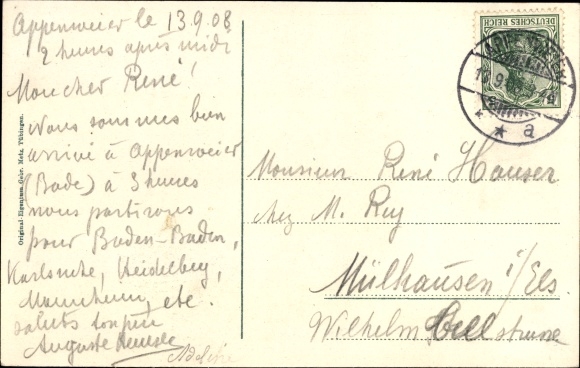 Appenweier le 13.9.08
2 heures après midi
Mon cher René!
Nous sommes bien
arrivé à Appenweier
(Bade) à 3 heures
nous partirons
pour Baden-Baden,
Karlsruhe, Heidelberg,
Mannheim, etc.
saluts
Auguste
Original-Eigentum Gebr. Metz, Tübingen.
DEUTSCHES REICH
* a
Monsieur René Hauser
chez M. Rey
Mülhausen i/Els.
Wilhelm strasse